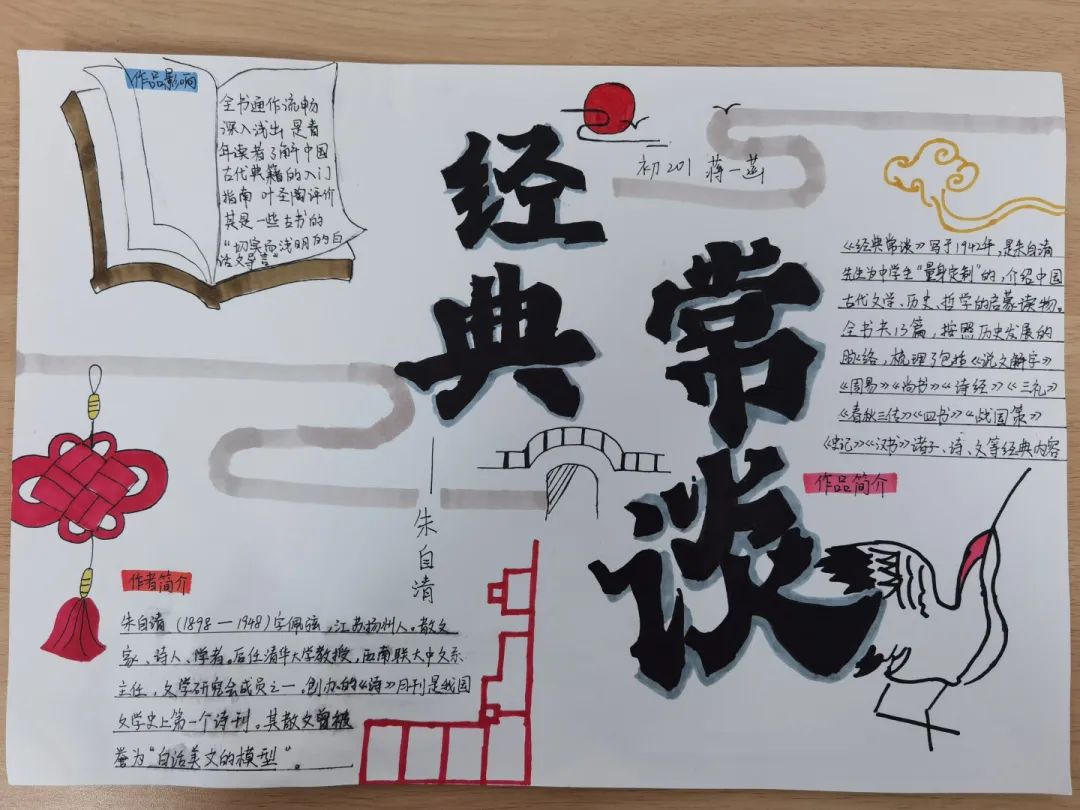 作品影响
全书通作流畅
深入浅出 是青
年读者了解中国
古代典籍的入门
指南 叶圣陶评价
其是一些古书的
“切实而浅明的白
话文导言”
经典
常谈
初201 蒋一莲
——朱自清
《经典常谈》写于1942年,是朱自清
先生为中学生“量身定制”的,介绍中国
古代文学、历史、哲学的启蒙读物。
全书共13篇,按照历史发展的
脉络,梳理了包括《说文解字》
《周易》《尚书》《诗经》《三礼》
《春秋三传》《四书》《战国策》
《史记》《汉书》诸子、诗、文等经典内容
作品简介
作者简介
朱自清(1898—1948)字佩弦,江苏扬州人。散文
家、诗人、学者。后任清华大学教授,西南联大中文系
主任,文学研究会成员之一。创办的《诗》月刊是我国
文学史上第一个诗刊。其散文曾被
誉为“白话美文的模型”。